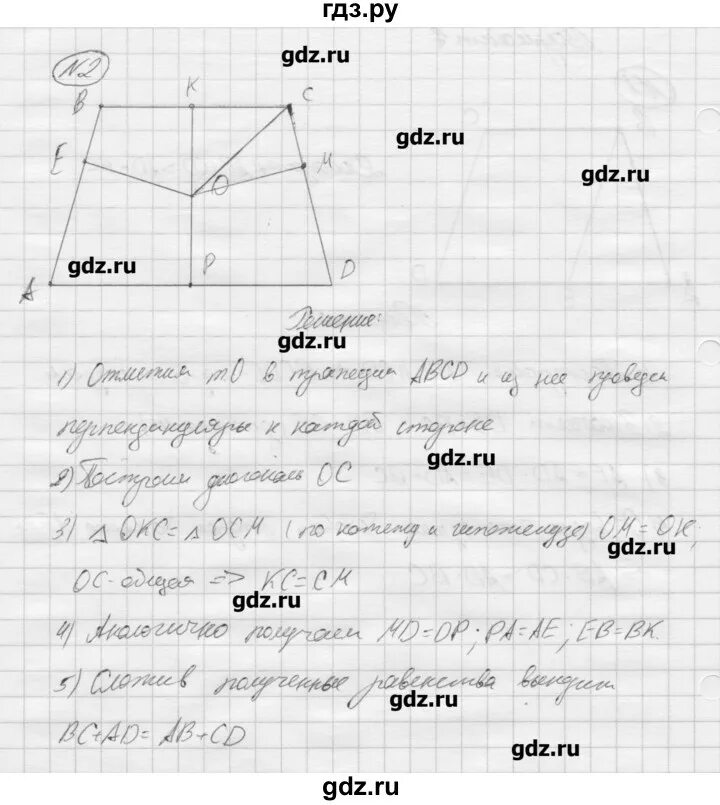 гдз.ру
N2
gdz.ru
B K C
gdz.ru
E M
gdz.ru
O
gdz.ru P D
A
Решение:
gdz.ru
1) Отметим т.О в трапеции ABCD и из нее проведем
перпендикуляры к каждой стороне
gdz.ru
2) Построим диагональ OC
3) △ OKC = △ OCM (по катету и гипотенузе) OM = OK;
gdz.ru
OC-общая => KC = CM
gdz.ru
4) Аналогично получаем MD=DP; PA=AE; EB=BK.
5) Сложив полученные равенства выходит
gdz.ru
BC+AD= AB+CD
gdz.ru
gdz.ru